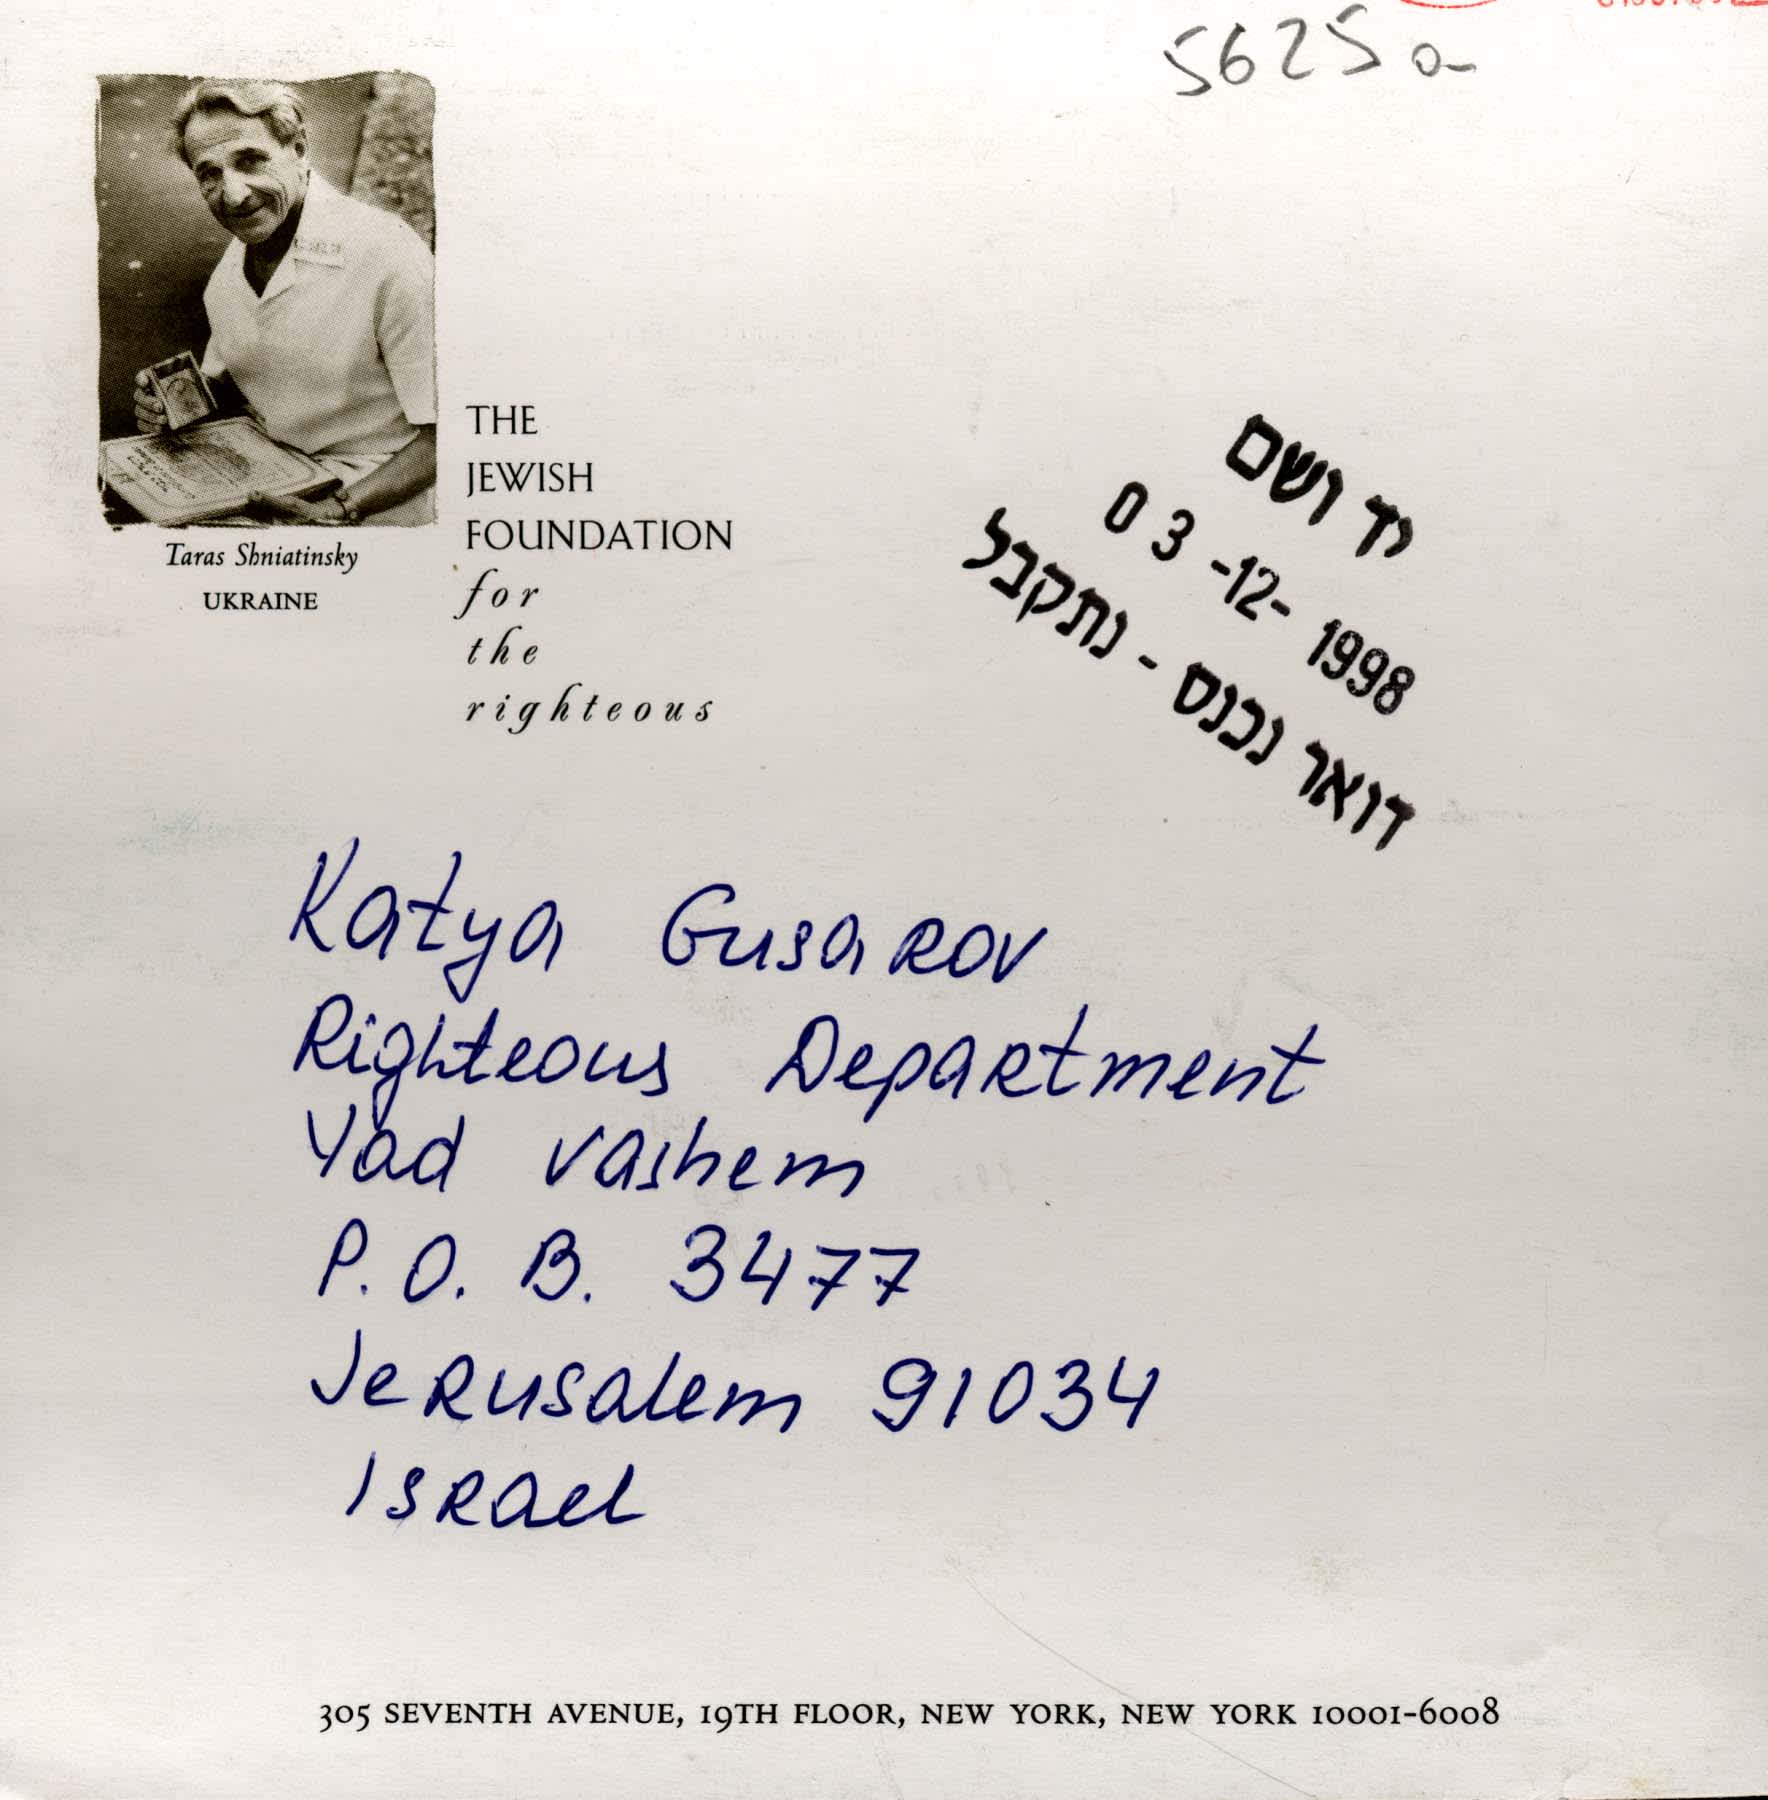 5625a
Taras Shniatinsky
UKRAINE
THE
JEWISH
FOUNDATION
for
the
righteous
יד ושם
03-12-1998
דואר נכנס - נתקבל
Katya Gusarov
Righteous Department
Yad Vashem
P. O. B. 3477
Jerusalem 91034
Israel
305 SEVENTH AVENUE, 19TH FLOOR, NEW YORK, NEW YORK 10001-6008